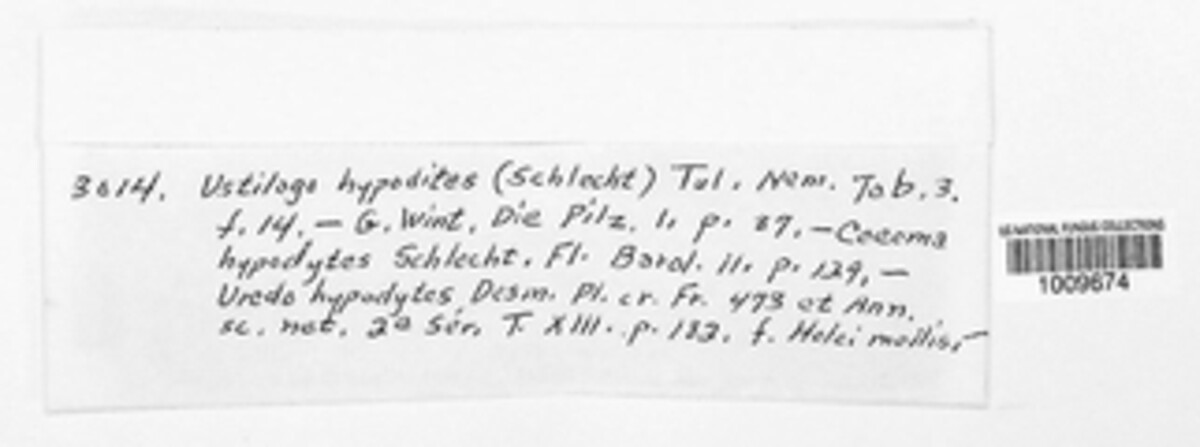 3014. Ustilago hypodites (Schlecht) Tul. Mem. Tab. 3.
f. 14. — G. Wint. Die Pilz. I. p. 87. — Caeoma
hypodytes Schlecht. Fl. Berol. II. p. 129. —
Uredo hypodytes Desm. Pl. cr. Fr. 473 et Ann.
sc. nat. 2a Sér. T. XIII. p. 182. f. Holci mollis.
US NATIONAL FUNGUS COLLECTIONS
1009674